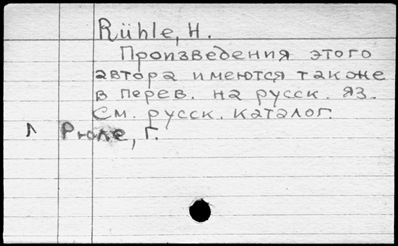 Rühle, H.
Произведения этого
автора имеются также
в перев. на русск. яз.
См. русск. каталог.
Рюле, Г.